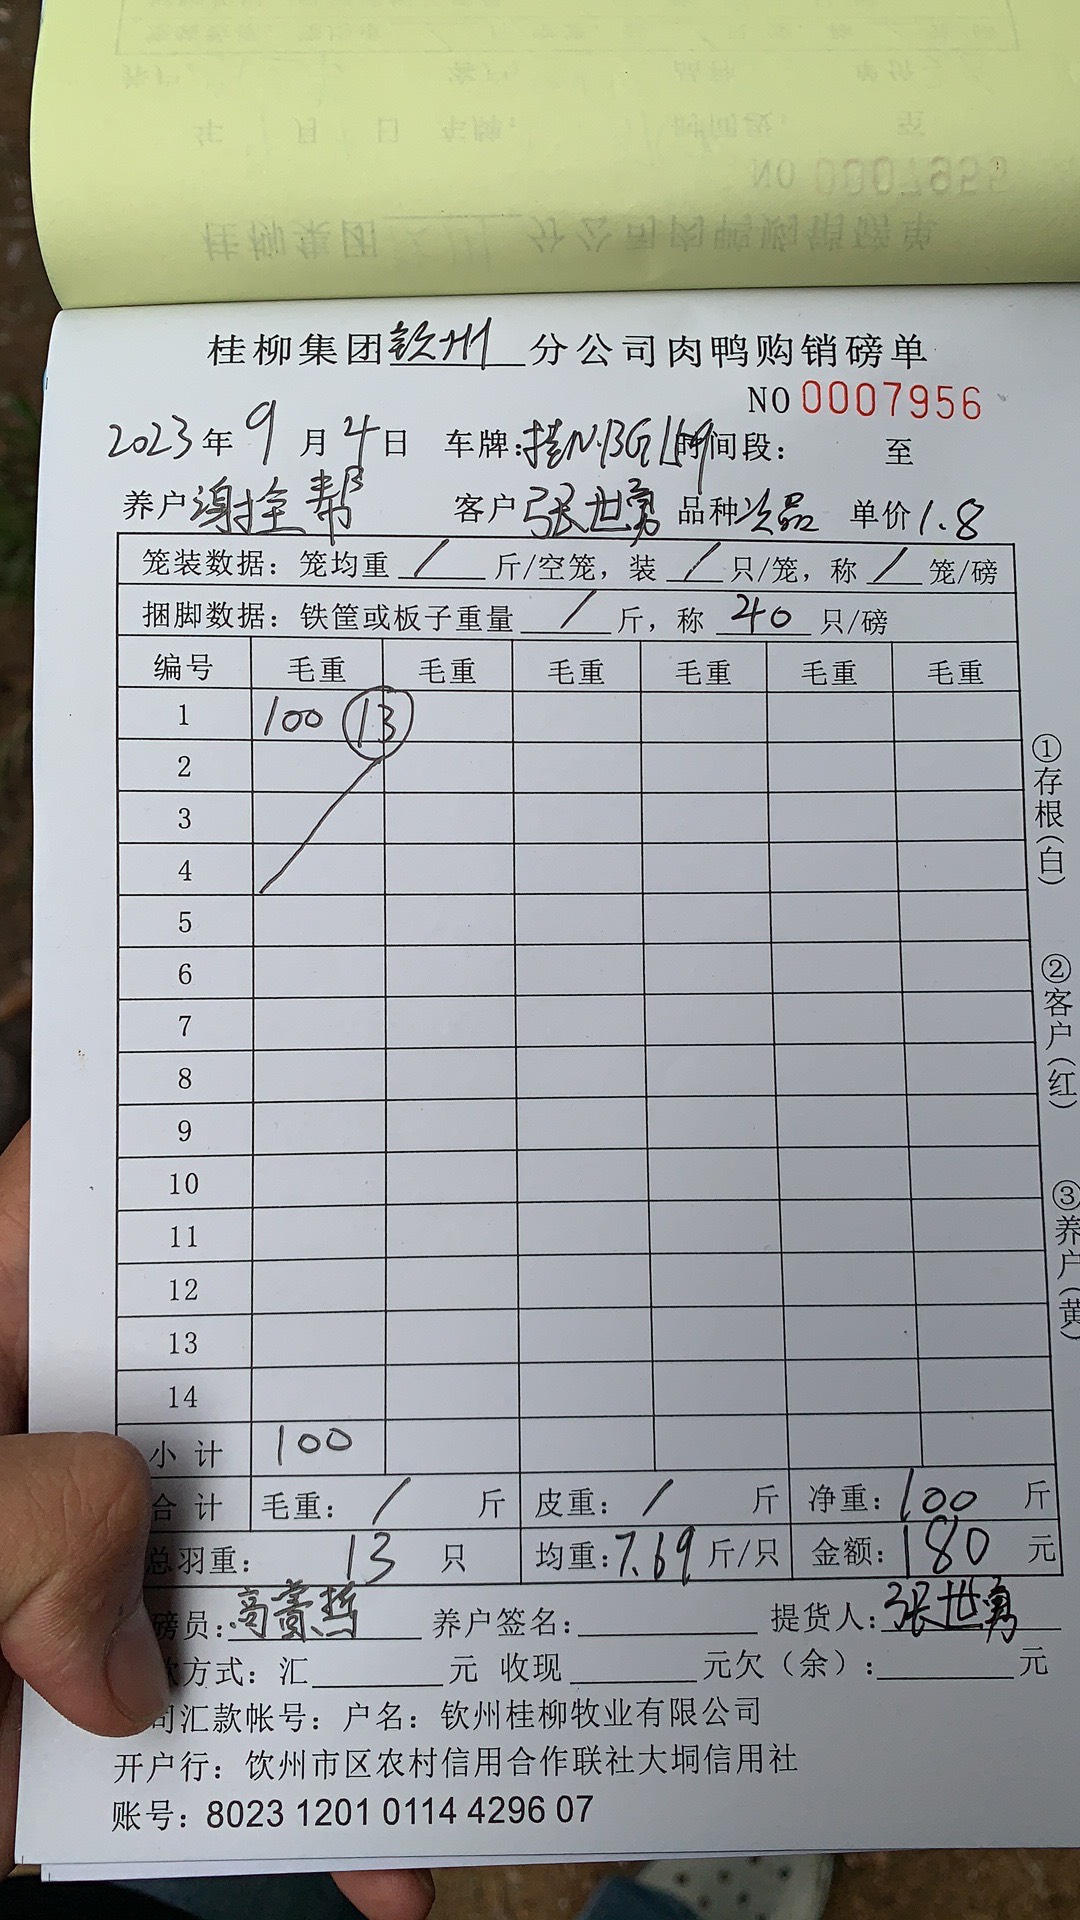 桂柳集团钦州分公司肉鸭购销磅单
NO 0007956
2023年9月4日 车牌:桂N·BG159 时间段: 至
养户 谢拴帮 客户 张世勇 品种 次品 单价 1.8
笼装数据: 笼均重 / 斤/空笼, 装 / 只/笼, 称 / 笼/磅
捆脚数据: 铁筐或板子重量 / 斤, 称 40 只/磅
编号 毛重 毛重 毛重 毛重 毛重 毛重
1 100 13
2
3
4
5
6
7
8
9
10
11
12
13
14
小计 100
合计 毛重: / 斤 皮重: / 斤 净重: 100 斤
总羽重: 13 只 均重: 7.69 斤/只 金额: 180 元
磅员: 高 养户签名: 提货人: 张世勇
款方式: 汇 元 收现 元欠(余): 元
司汇款帐号: 户名: 钦州桂柳牧业有限公司
开户行: 饮州市区农村信用合作联社大垌信用社
账号: 8023 1201 0114 4296 07
①存根(白)
②客户(红)
③养户(黄)